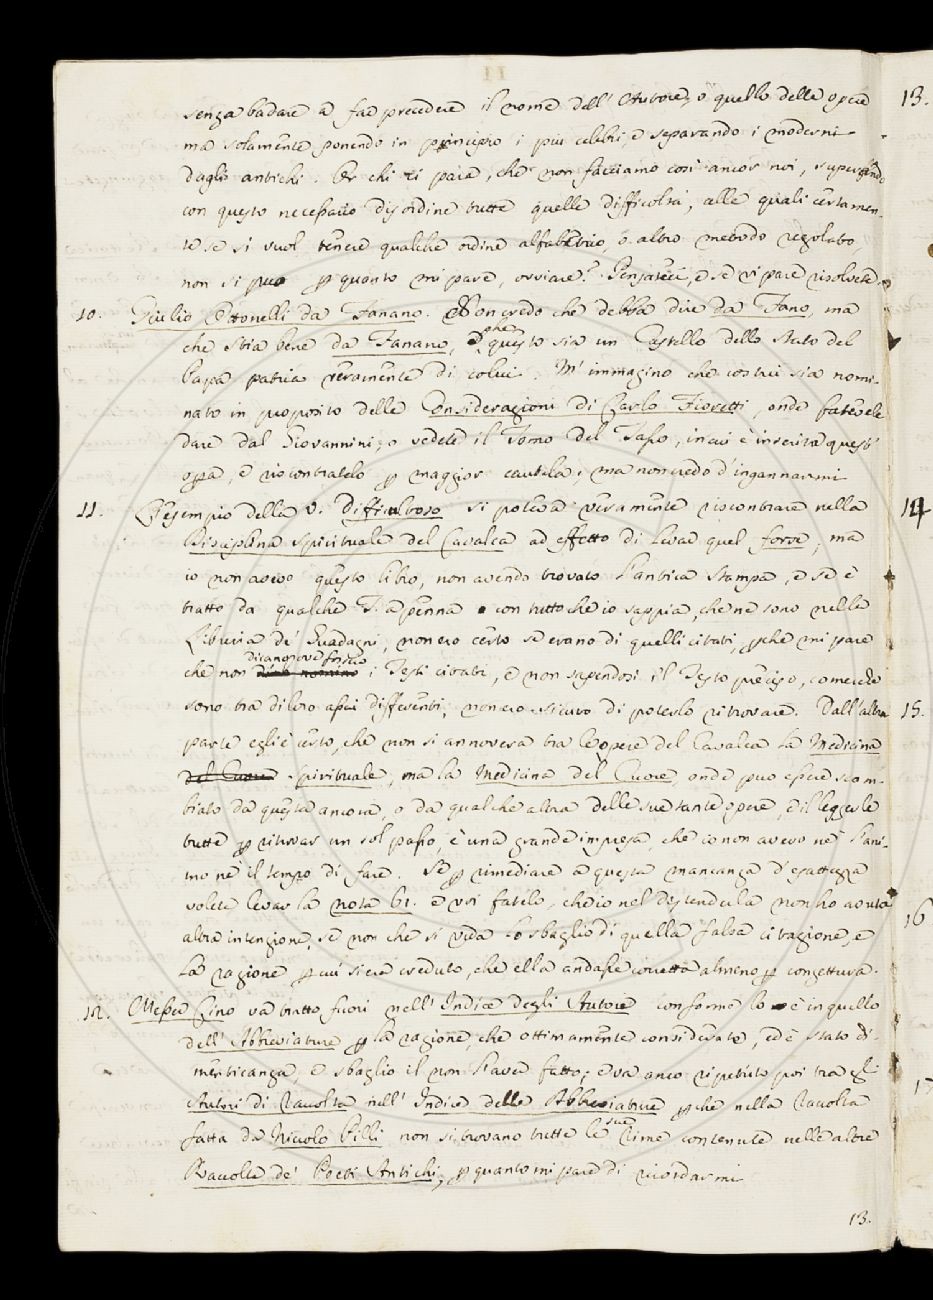 senza badare a far precedere il nome dell' Autore, o quello delle opere
ma solamente ponendo in principio i più celebri, e separando i moderni
dagli antichi. Or chi ti pare, che non facciamo così ancor noi, superando
con questo necessario disordine tutte quelle difficoltà, alle quali certamen-
te se si vuol tenere qualche ordine alfabetico, o altro metodo regolato
non si può p quanto mi pare, ovviare? Pensateci, e se vi pare risolvete.
10. Giulio Ottonelli da Fanano. Non credo che debba dire da Fano, ma
che stia bene da Fanano, e che questo sia un Castello dello Stato del
Papa patria veramente di colui. M' immagino che costui sia nomi-
nato in proposito delle Considerazioni di Carlo Fioretti, onde fatevele
dare dal Giovannini, o vedete il Tomo del Tasso, in cui è inserita quest'
opa, e riscontratelo p maggior cautela; ma non credo d'ingannarmi
11. L'esempio della V. Difficultoso si poteva veramente riscontrare nella
Disciplina Spirituale del Cavalca ad effetto di levar quel forse, ma
io non avevo questo libro, non avendo trovato l'antica stampa, e se è
tratto da qualche T. a penna con tutto che io sappia, che ne sono nella
Libreria de' Guadagni, non ero certo se erano di quelli citati, pche mi pare
dicano ove fossero
che non i Testi citati, e non sapendosi il Testo preciso, come che
sono tra di loro assai differenti, non ero sicuro di poterlo ritrovare. Dall'altra
parte egli è certo, che non si annovera tra le opere del Cavalca la Medicina
del Cuore Spirituale, ma la Medicina del Cuore, onde può essere scam-
biato da questa ancora, o da qualche altra delle sue tante opere, e il leggerle
tutte p ritrovar un sol passo, è una grande impresa, che io non avevo nè l'ani-
mo nè il tempo di fare. Se p rimediare a questa mancanza d'esattezza
volete levar la nota 61. e voi fatelo, che io nel distenderla non ho avuta
altra intenzione, se non che si veda lo sbaglio di quella falsa citazione, e
la ragione p cui si era creduto, che ella andasse corretta almeno p congettura.
12. Messer Cino va tratto fuori nell' Indice degli Autori conforme lo è in quello
dell' Abbreviature p la ragione, che ottimamente considerate, ed è stato di-
menticanza, e sbaglio il non l'aver fatto; e va anco ripetuto poi tra gli
Autori di Raccolta nell' Indice delle Abbreviature pche nella Raccolta
fatta da Niccolò Pilli non si trovano tutte le sue Rime contenute nelle altre
Raccolte de' Poeti Antichi, p quanto mi pare di ricordarmi
13.
13.
14
15.
16
17